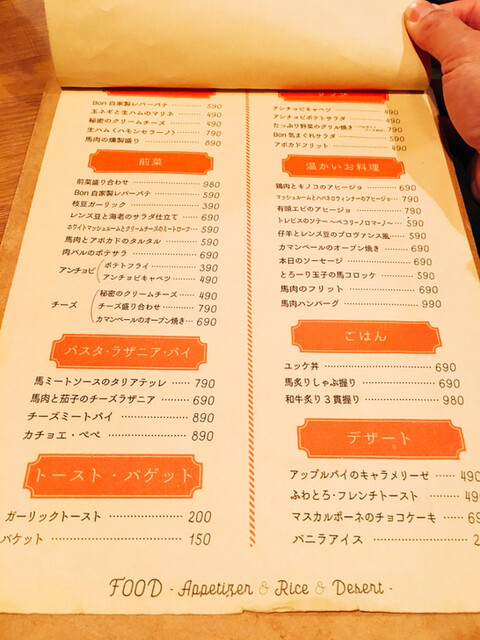 Bon 自家製レバーパテ 590
玉ネギと生ハムのマリネ 490
秘密のクリームチーズ 490
生ハム《ハモンセラーノ》 790
馬肉の燻製盛り 890
前菜
前菜盛り合わせ 980
Bon 自家製レバーパテ 590
枝豆ガーリック 390
レンズ豆と海老のサラダ仕立て 690
ホワイトマッシュルームとクリームチーズのミートローフ 590
馬肉とアボカドのタルタル 590
肉バルのポテサラ 690
アンチョビ
ポテトフライ 390
アンチョビキャベツ 490
チーズ
秘密のクリームチーズ 490
チーズ盛り合わせ 790
カマンベールのオーブン焼き 690
パスタ・ラザニア・パイ
馬ミートソースのタリアテッレ 790
馬肉と茄子のチーズラザニア 690
チーズミートパイ 890
カチョエ・ペペ 890
トースト・バゲット
ガーリックトースト 200
バケット 150
アンチョビキャベツ 490
アンチョビポテトサラダ 490
たっぷり野菜のグリル焼き 790
Bon 気まぐれサラダ 590
アボカドフリット 490
温かいお料理
鶏肉とキノコのアヒージョ 690
マッシュルームとハベネロウィンナーのアヒージョ 790
有頭エビのアヒージョ 790
トレビスのソテー 〜ペコリーノロマーノ〜 590
仔羊とレンズ豆のプロヴァンス風 590
カマンベールのオーブン焼き 690
本日のソーセージ 690
とろーり玉子の馬コロッケ 590
馬肉のフリット 690
馬肉ハンバーグ 990
ごはん
ユッケ丼 690
馬炙りしゃぶ握り 690
和牛炙り3貫握り 980
デザート
アップルパイのキャラメリーゼ 490
ふわとろ・フレンチトースト 490
マスカルポーネのチョコケーキ
バニラアイス
FOOD - Appetizer & Rice & Desert -